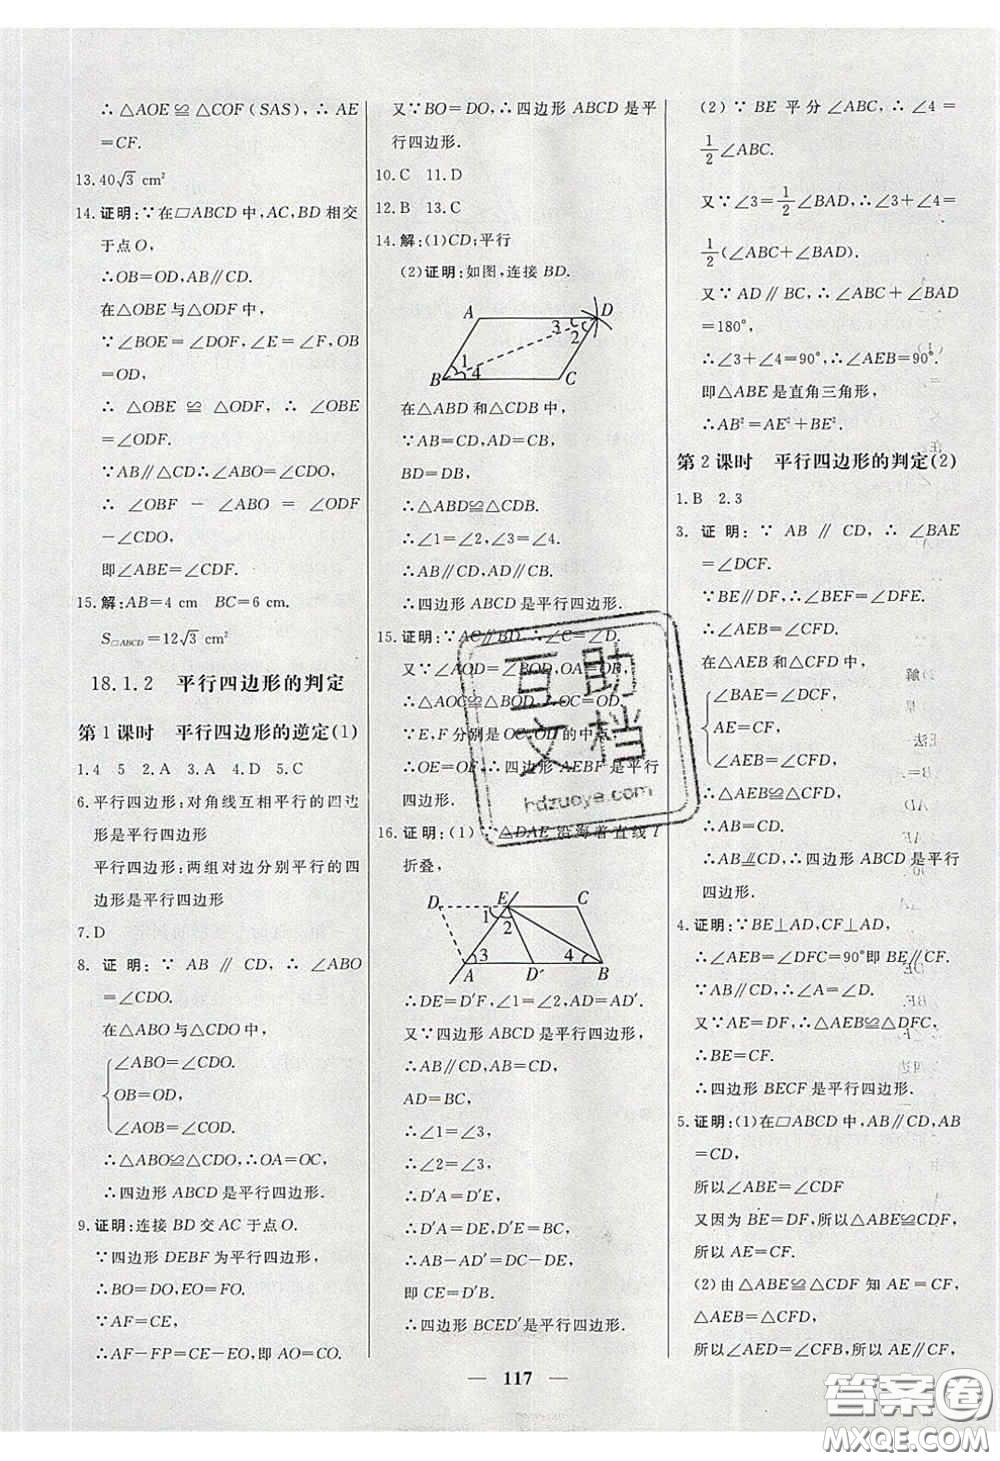 ∴△AOE≌△COF(SAS),∴AE
=CF.
13.40√3 cm²
14.证明:∵在▱ABCD中,AC,BD相交
于点O,
∴OB=OD,AB∥CD.
在△OBE与△ODF中,
∵∠BOE=∠DOF,∠E=∠F,OB
=OD,
∴△OBE≌△ODF,∴∠OBE
=∠ODF.
∵AB∥CD∴∠ABO=∠CDO,
∴∠OBF-∠ABO=∠ODF
-∠CDO,
即∠ABE=∠CDF.
15.解:AB=4 cm BC=6 cm.
S▱ABCD=12√3 cm²
18.1.2 平行四边形的判定
第1课时 平行四边形的逆定(1)
1.4 5 2.A 3.A 4.D 5.C
6.平行四边形:对角线互相平行的四边
形是平行四边形
平行四边形:两组对边分别平行的四
边形是平行四边形
7.D
8.证明:∵AB∥CD,∴∠ABO
=∠CDO.
在△ABO与△CDO中,
∠ABO=∠CDO.
OB=OD.
∠AOB=∠COD.
∴△ABO≌△CDO,∴OA=OC,
∴四边形ABCD是平行四边形.
9.证明:连接BD交AC于点O.
∵四边形DEBF为平行四边形,
∴BO=DO,EO=FO.
∵AF=CE,
∴AF-FP=CE-EO,即AO=CO.
又∵BO=DO,∴四边形ABCD是平
行四边形.
10.C 11.D
12.B 13.C
14.解:(1)CD;平行
(2)证明:如图,连接BD.
A D 3 2 1 4 B C
在△ABD和△CDB中,
∵AB=CD,AD=CB,
BD=BD,
∴△ABD≌△CDB.
∴∠1=∠2,
∴∠3=∠4.
∴四边形ABCD是平行四边形.
15.证明:∵AC∥BD,∴∠C=∠D.
又∵∠AOD=∠BOD,OA=OB,
∴△AOC≌△BOD,∴OC=OD.
∵E,F分别是OC,OD的中点,
∴OE=OF,∴四边形AEBF是平行
四边形.
16.证明:(1)∵△DAE沿海着直线l
折叠,
D E C 1 2 3 4 A D′ B
∴DE=D′F,∠1=∠2,AD=AD′.
又∵四边形ABCD是平行四边形,
∴AB∥CD,AB=CD,
AD=BC,
∴∠1=∠3,
∴∠2=∠3.
∴D′A=D′E,
∴D′A=DE,D′E=BC,
∴AB-AD′=DC-DE,
即CE=D′B.
∴四边形BCED′是平行四边形.
(2)∵BE平分∠ABC,∴∠4=
1/2∠ABC.
又∵∠3=1/2∠BAD,∴∠3+∠4=
1/2(∠ABC+∠BAD).
又∵AD∥BC,∴∠ABC+∠BAD
=180°,
∴∠3+∠4=90°,∴∠AEB=90°.
即∠ABE是直角三角形,
∴AB²=AE²+BE².
第2课时 平行四边形的判定(2)
1.B 2.3
3.证明:∵AB∥CD,∴∠BAE
=∠DCF.
∵BE∥DF,∴∠BEF=∠DFE.
∴∠AEB=∠CFD.
在△AEB和△CFD中
∠BAE=∠DCF,
AE=CF,
∠AEB=∠CFD,
∴△AEB≌△CFD.
∴AB=CD.
∴四边形ABCD是平行
四边形.
4.证明:∵BE⊥AD,CF⊥AD,
∴∠AEB=∠DFC=90°即BE∥CF.
∵AB∥CD,∴∠A=∠D.
又∵AE=DF,∴△AEB≌△DFC,
∴BE=CF.
∴四边形BECF是平行四边形.
5.证明:(1)在▱ABCD中,AB∥CD,AB
=CD,
所以∠ABE=∠CDF
又因为BE=DF,所以△ABE≌△CDF,
所以AE=CF.
(2)由△ABE≌△CDF知AE=CF,
∠AEB=∠CFD,
所以∠AED=∠CFB,所以AE∥CF,
117
互助文档
hdzuoye.com
答案圈
MXQE.COM